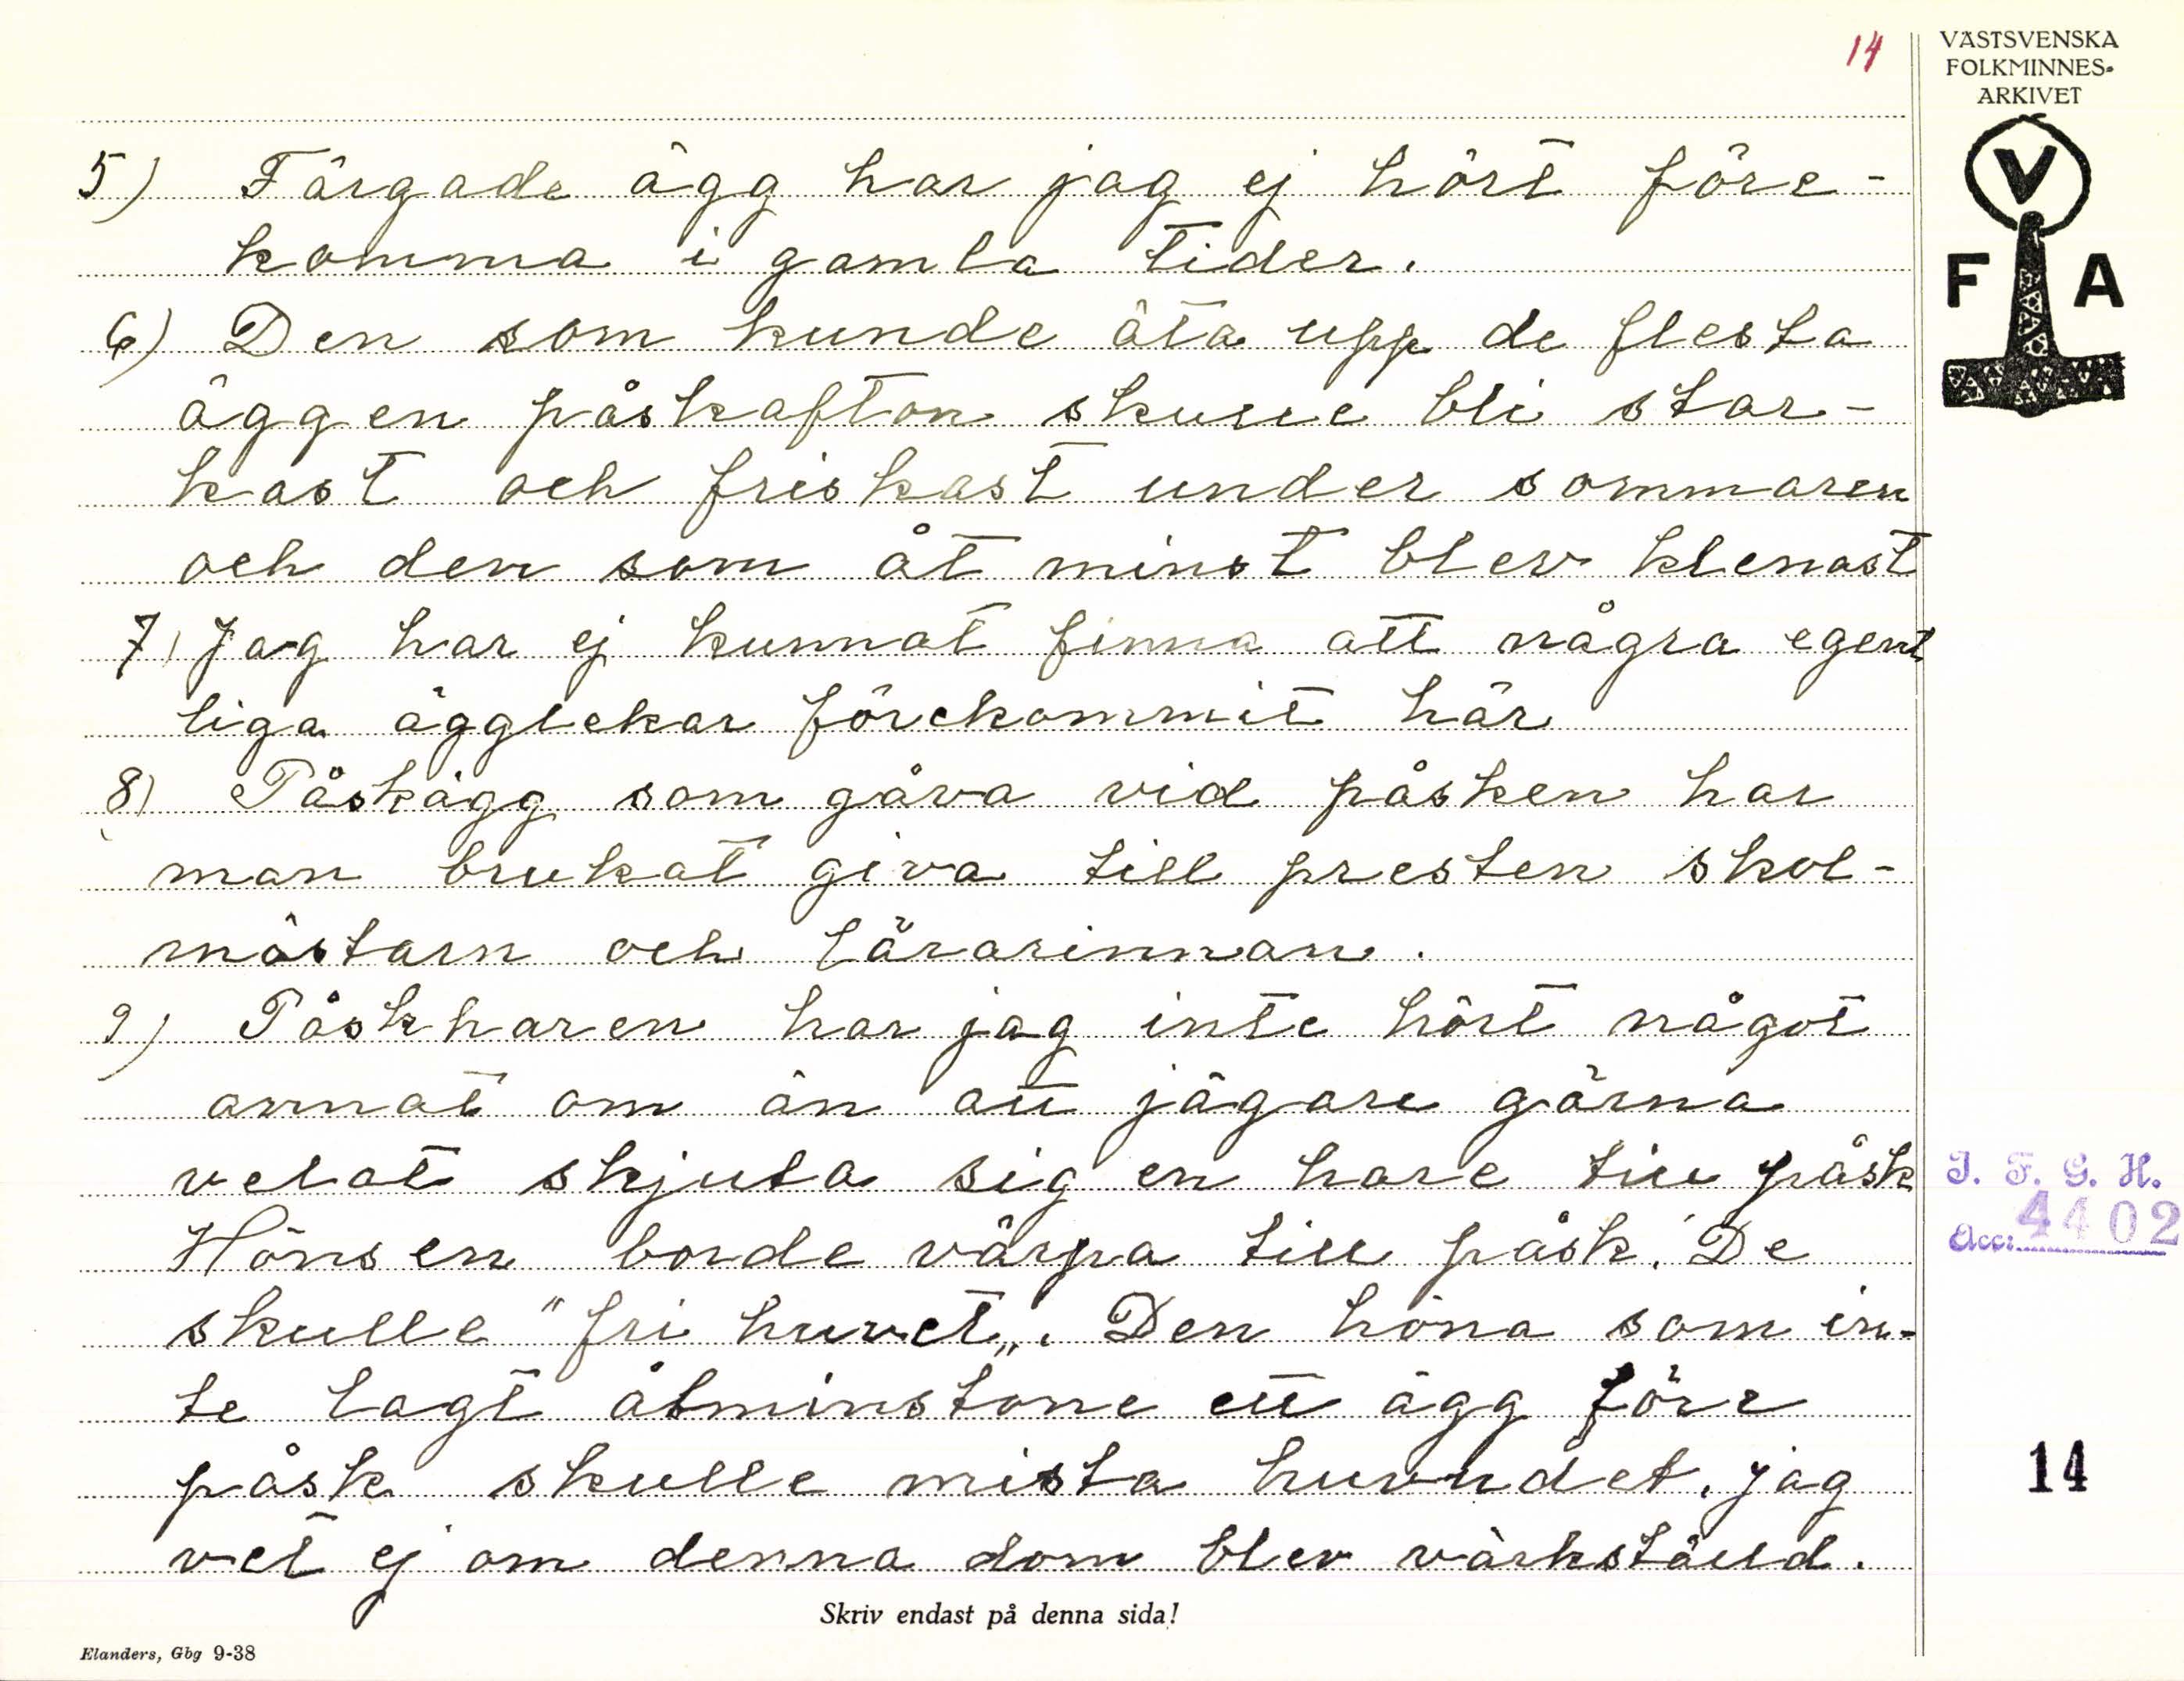 14
VÄSTSVENSKA
FOLKMINNES-
ARKIVET
V
F A
5) Färgade ägg har jag ej hört före-
komma i gamla tider.
6) Den som kunde äta upp de flesta
äggen påskafton skulle bli star-
kast och friskast under sommaren
och den som åt minst blev klenast
7) Jag har ej kunnat finna att några egent
liga ägglekar förekommit här
8) Påskägg som gåva vid påsken har
man brukat giva till presten skol-
mästarn och lärarinnan.
9) Påskharen har jag inte hört något
annat om än att jägare gärna
velat skjuta sig en hare till påsk
Hönsen borde värpa till påsk. De
skulle "fri huvet„. Den höna som in-
te lagt åtminstone ett ägg förr
påsk skulle mista huvudet. jag
vet ej om denna dom blev värkställd.
I. F. G. H.
Acc: 4402
14
Skriv endast på denna sida!
Elanders, Gbg 9-38